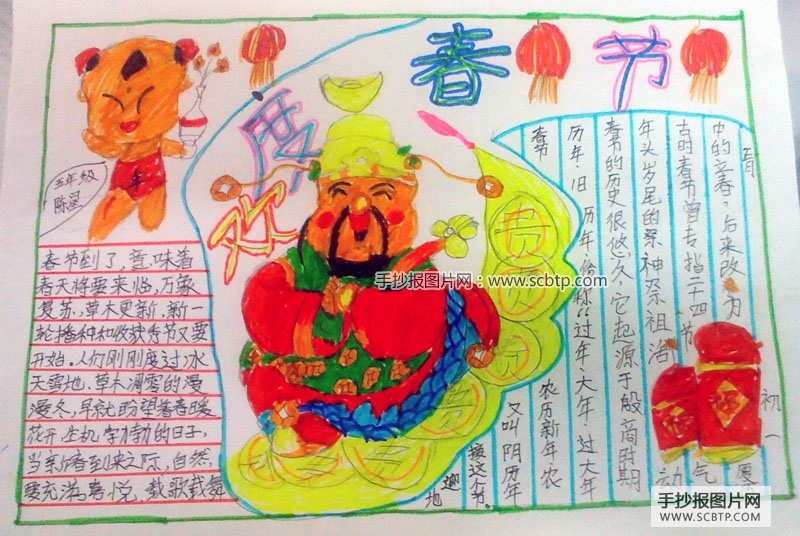 欢度春节
五年级
陈
春节到了,意味着
春天将要来临,万象
复苏,草木更新,新一
轮播种和收获季节又要
开始。人们刚刚度过冰
天雪地、草木凋零的漫
漫冬,早就盼望着春暖
花开、生机字勃勃的日子,
当新春到来之际,自然,
要充满喜悦、载歌载舞
地迎
接这个节。
又叫阴历年
春节
农历新年、农
历年、旧历年、俗称“过年、大年、过大年
春节的历史很悠久,它起源于殷商时期
年头岁尾的祭神祭祖活动
古时春节曾专指二十四节气
中的立春,后来改为
正月初一
手抄报图片网:www.scbtp.com
手抄报图片网
WWW.SCBTP.COM